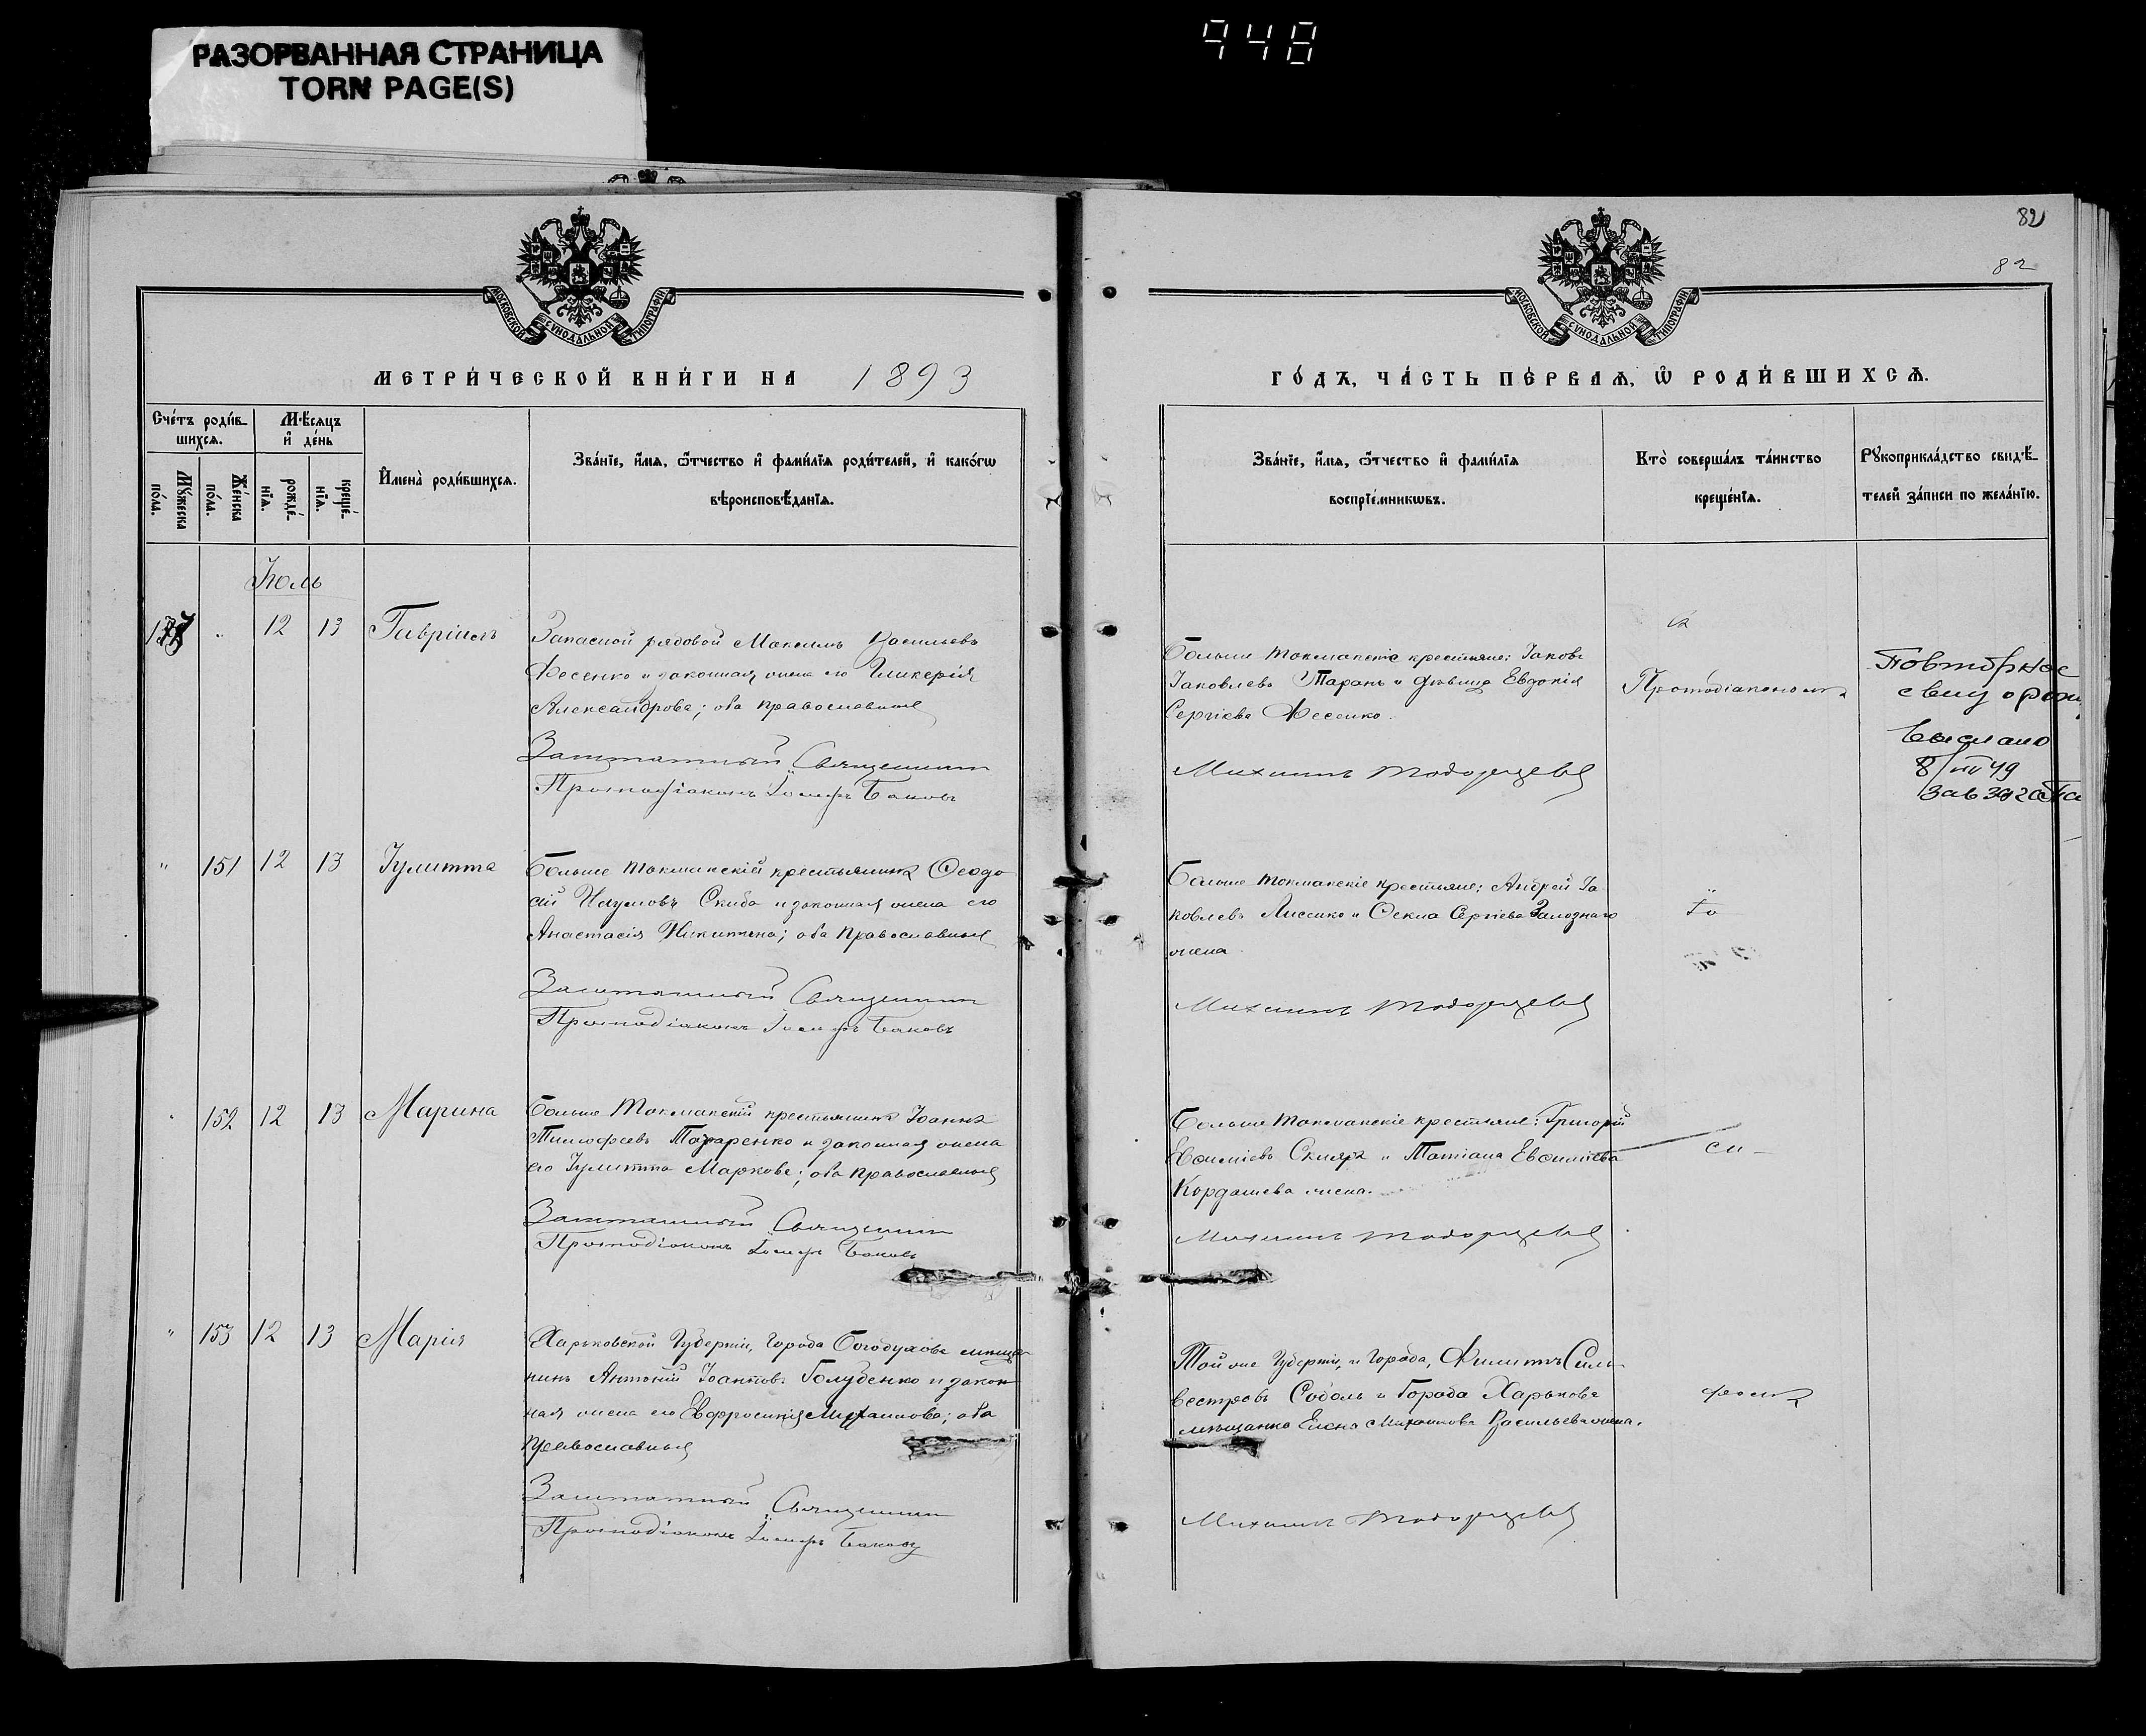 РАЗОРВАННАЯ СТРАНИЦА
TORN PAGE(S)
948
82
82
МОСКОВСКОЙ СѴНОДАЛЬНОЙ ТИПОГРАФІИ
МОСКОВСКОЙ СѴНОДАЛЬНОЙ ТИПОГРАФІИ
МЕТРИ́ЧЕСКОЙ КНИ́ГИ НА 1893
ГО́ДЪ, ЧА́СТЬ ПЕ́РВАЯ, Ѽ РОДИ́ВШИХСЯ.
Сче́тъ роди́в-
шихся.
Мꙋ́жеска по́ла.
Же́нска по́ла.
Мѣ́сяцъ
и҆ де́нь
рожде́-
нїя.
креще́-
нїя.
И҆мена̀ роди́вшихся.
Зва́нїе, и҆́мя, ѻ҆́тчество и҆ фами́лїя роди́телей, и҆ како́гѡ
вѣроисповѣ́данїя.
Зва́нїе, и҆́мя, ѻ҆́тчество и҆ фами́лїя
воспрїе́мникѡвъ.
Кто̀ соверша́лъ та́инство
креще́нїя.
Рꙋкоприкла́дство свидѣ́-
телей за́писи по жела́нїю.
Іюль
12 13 Гавріилъ
Запасной рядовой Максимъ Васильевъ
Фесенко и законная жена его Гликерія
Александрова; оба православные
Заштатный Священникъ
Протодіаконъ Іосифъ Баковъ
Больше Токмакскіе крестьяне: Іаковъ
Іаковлевъ Таранъ и дѣвица Евдокія
Сергіева Фесенко.
Михаилъ
Протодіакономъ
Повторное
свид о рож
Выслано
8/III 49
Зав
" 151 12 13 Іулитта
Больше Токмакскій крестьянинъ Ѳеодо
сій Наумовъ Скиба и законная жена его
Анастасія Никитина; оба православные
Заштатный Священникъ
Протодіаконъ Іосифъ Баковъ
Больше Токмакскіе крестьяне: Андрей Іа
ковлевъ Лисенко и Ѳекла Сергіева
жена
Михаилъ
Іо
152 12 13 Марина
Больше Токмакскій крестьянинъ Іоаннъ
Тимофеевъ Татаренко и законная жена
его Іулитта Маркова; оба православные
Заштатный Священникъ
Протодіаконъ Іосифъ Баковъ
Больше Токмакскіе крестьяне: Григорій
Евѳиміевъ Скляръ и Татіана Евѳиміева
Кордашева жена.
Михаилъ
си
" 153 12 13 Марія
Харьковской Губерніи, Города Богодухова мѣща
нинъ Антоній Іоанновъ Голубенко и закон
ная жена его Евфросинія Михаилова; оба
православные
Заштатный Священникъ
Протодіаконъ Іосифъ Баковъ
Той же Губерніи, и Города, Филиппъ Силь
вестровъ Соболь и Города Харькова
мѣщанка Елена Михаилова Васильева жена.
Михаилъ
фомъ